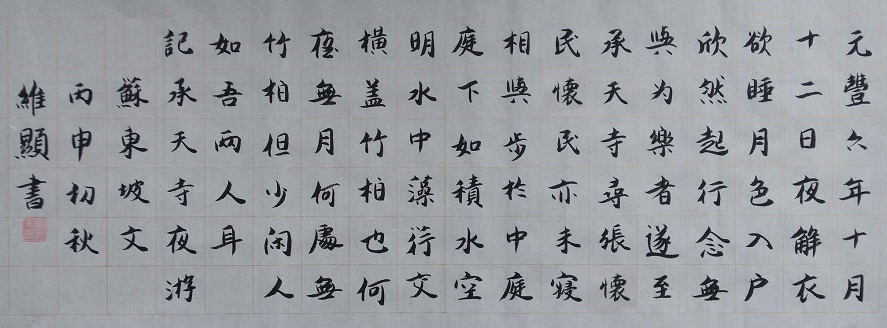 元豐六年十月
十二日夜解衣
欲睡月色入户
欣然起行念無
與为樂者遂至
承天寺尋張懷
民懷民亦未寢
相與步於中庭
庭下如積水空
明水中藻荇交
橫盖竹柏也何
夜無月何處無
竹柏但少闲人
如吾兩人耳
記承天寺夜游
蘇東坡文
丙申初秋
維顯書